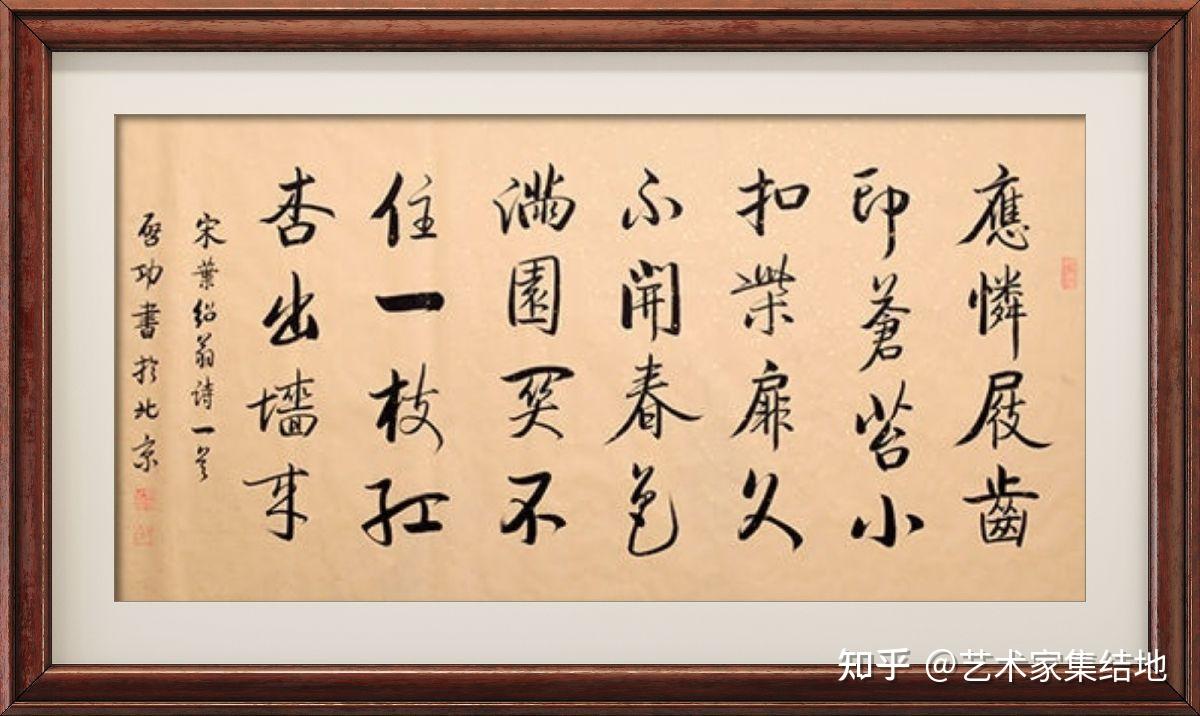 應憐屐齒
印蒼苔小
扣柴扉久
不開春色
滿園関不
住一枝紅
杏出墻来
宋葉紹翁詩一首
啓功書於北京
知乎 @艺术家集结地